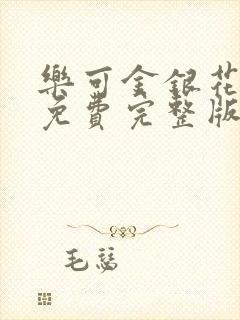 樂可金銀花
免費完整版
毛毬